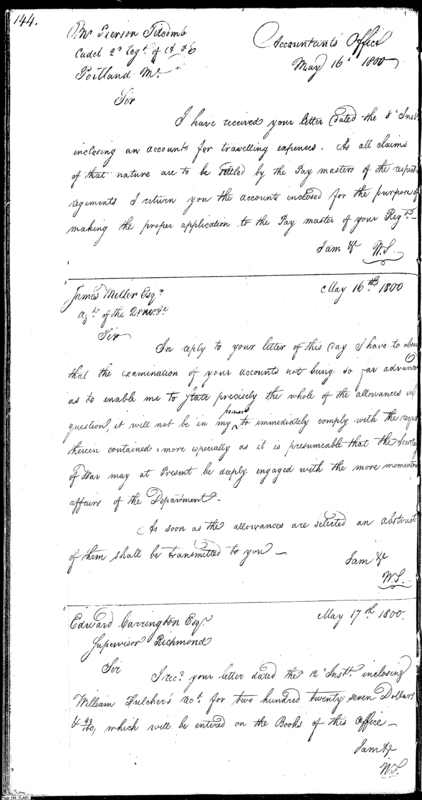 144.
Mr Pierson Titcomb
Cadet 2d Regt. of A &
Portland Me.
Accountants Office
May 16th 1800
Sir
I have received your letter dated the 8th Inst
inclosing an account for travelling expences. As all claims
of that nature are to be settled by the Pay masters of the respect
regiments I return you the account inclosed for the purpose of
making the proper application to the Pay master of your Regt.
I am &c W.S.
James Miller Esqr
May 16th 1800
agt of the
Sir
In reply to your letter of this day I have to obser
that the examination of your accounts not being so far advance
as to enable me to state precisely the whole of the allowances in
question, it will not be in my power to immediately comply with the reque
therein contained, more especially as it is presumeable that the Secretary
of War may at Present be deeply engaged with the more momentous
affairs of the Department.
As soon as the allowances are selected an abstract
of them shall be transmitted to you —
I am &c
W.S.
Edward Carrington Esqr
May 17th 1800.
Supervisor Richmond
Sir
I recd. your letter dated the 12th Inst. inclosing
William Fulcher's rect. for two hundred twenty seven Dollars
which will be entered on the Books of this Office —
I am &c
W.S.